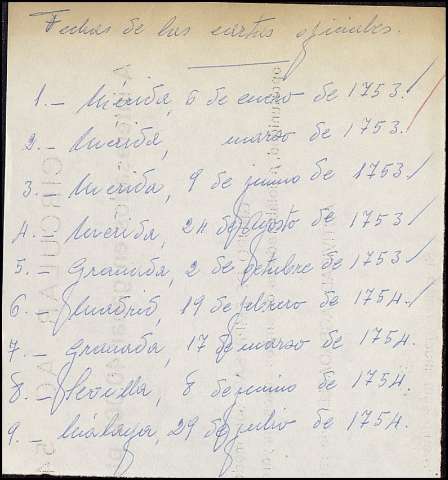 Fechas de las cartas oficiales.
1.- Merida, 6 de enero de 1753.
2.- Merida, marzo de 1753.
3.- Merida, 9 de junio de 1753.
4.- Merida, 24 de agosto de 1753
5.- Granada, 2 de octubre de 1753
6.- Madrid, 19 de febrero de 1754.
7.- Granada, 17 de marzo de 1754.
8.- Sevilla, 8 de junio de 1754.
9.- Málaga, 29 de julio de 1754.